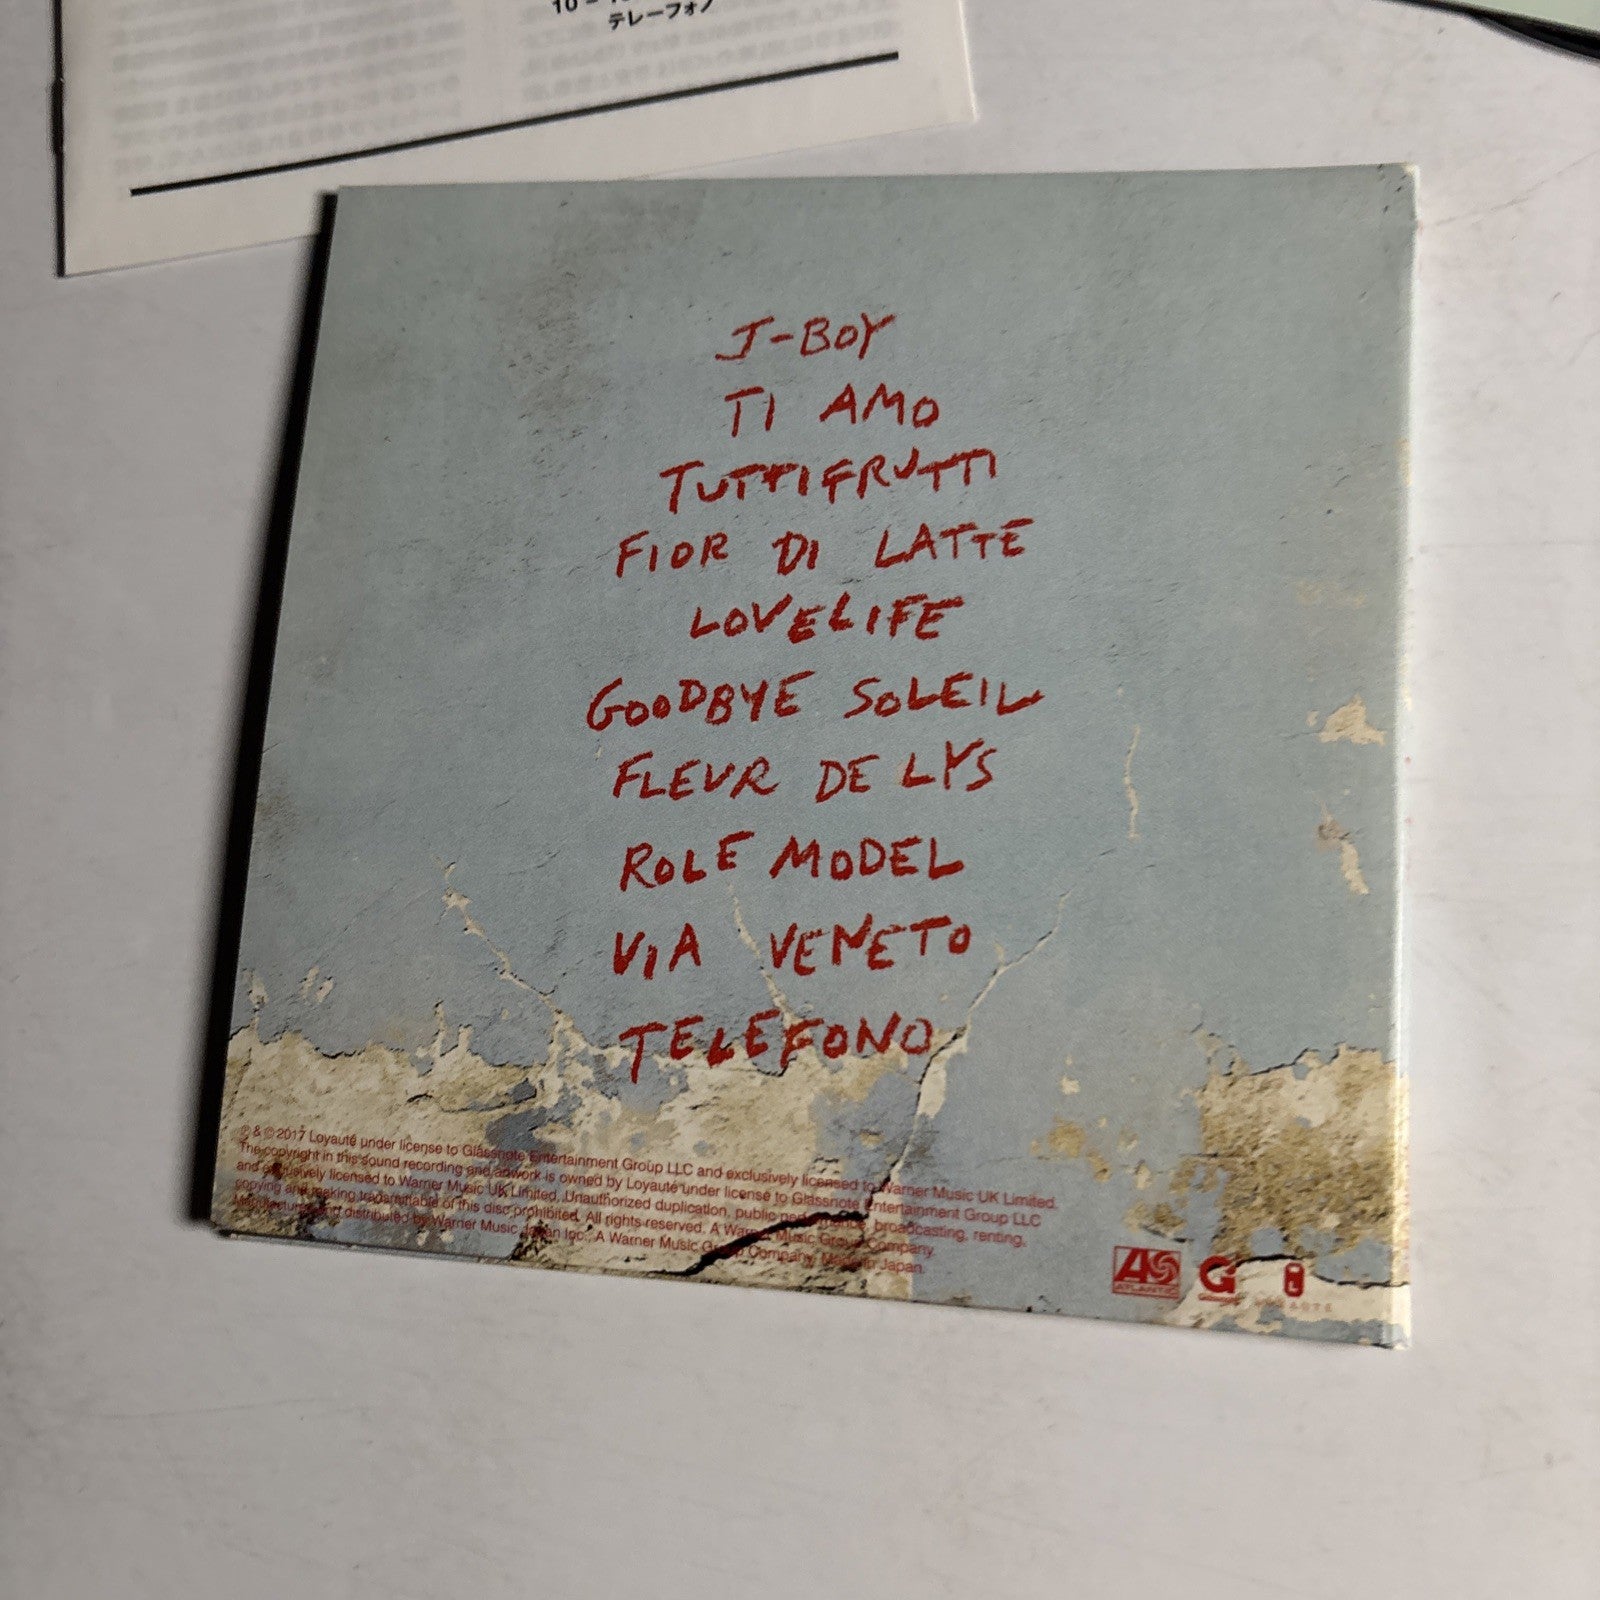 テレーフォノ
J-BOY
TI AMO
TUTTIFRUTTI
FIOR DI LATTE
LOVELIFE
GOODBYE SOLEIL
FLEUR DE LYS
ROLE MODEL
VIA VENETO
TELEFONO
℗ & © 2017 Loyauté under license to Glassnote Entertainment Group LLC and exclusively licensed to Warner Music UK Limited.
The copyright in this sound recording and artwork is owned by Loyauté under license to Glassnote Entertainment Group LLC
and exclusively licensed to Warner Music UK Limited. Unauthorized duplication, public performance, broadcasting, renting,
copying and making transmittable of this disc prohibited. All rights reserved. A Warner Music Group Company.
Manufactured and distributed by Warner Music Japan Inc., A Warner Music Group Company. Made in Japan.
ATLANTIC
G